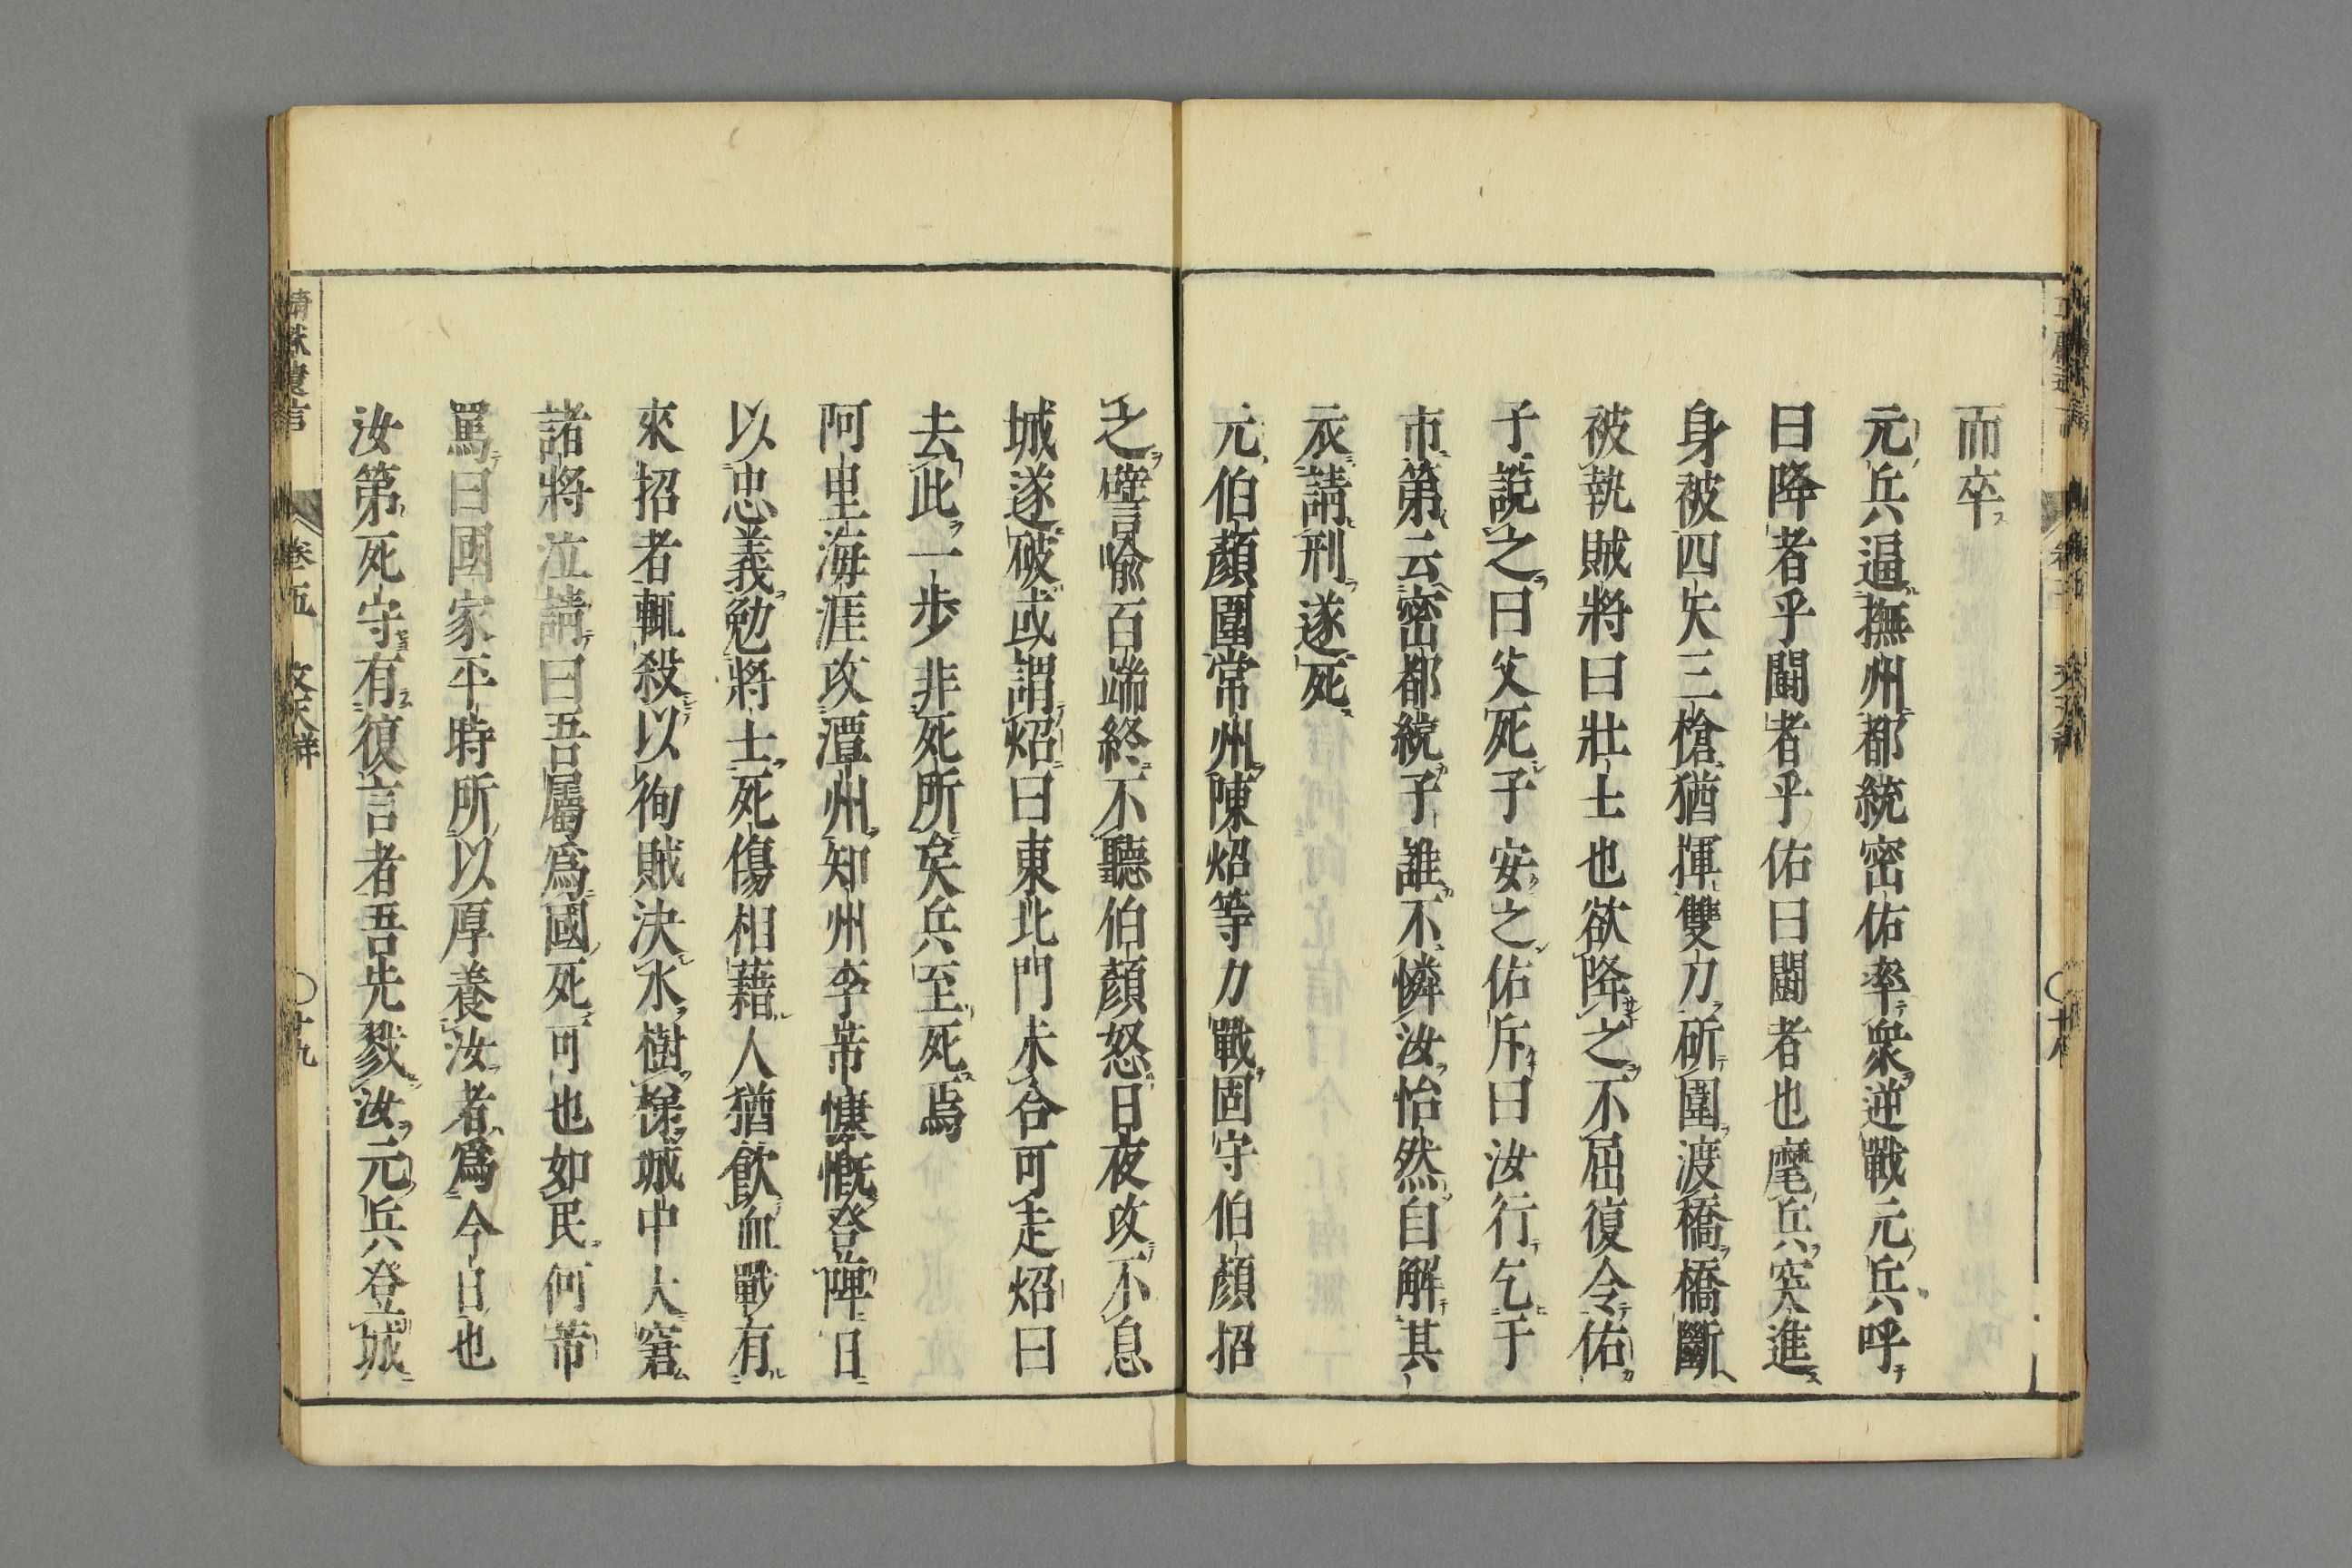 而卒
元兵逼撫州都統密佑率衆逆戰元兵呼
曰降者乎鬪者乎佑曰鬪者也麾兵突進
身被四矢三槍猶揮雙刀斫圍渡橋橋斷
被執賊將曰壯士也欲降之不屈復令佑
子説之曰父死子安之佑斥曰汝行乞于
市第云密都統子誰不憐汝怡然自解其
衣請刑遂死
元伯顏圍常州陳炤等力戰固守伯顏招
之譬喻百端終不聽伯顏怒日夜攻不息
城遂破或謂炤曰東北門未合可走炤曰
去此一步非死所矣兵至死焉
阿里海涯攻潭州知州李芾慷慨登陴日
以忠義勉將士死傷相藉人猶飲血戰有
來招者輒殺以徇賊決水樹梯城中大窘
諸將泣請曰吾屬爲國死可也如民何芾
罵曰國家平時所以厚養汝者爲今日也
汝第死守有復言者吾先戮汝元兵登城
靖献遺言 卷五 文天祥 〇廿九